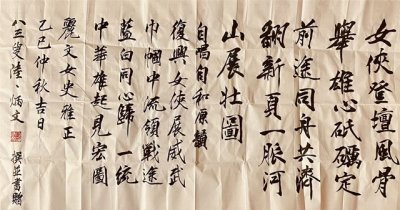 女俠登壇風骨
舉雄心砥礪定
前途同舟共濟
翻新頁一脈河
山展壯圖
自唱自和原韻
復興女俠展威武
巾幗中流領戰途
藍白同心歸一統
中華雄起見宏圖
麗文女史雅正
乙巳仲秋吉日
八三叟陸炳文
撰並書贈